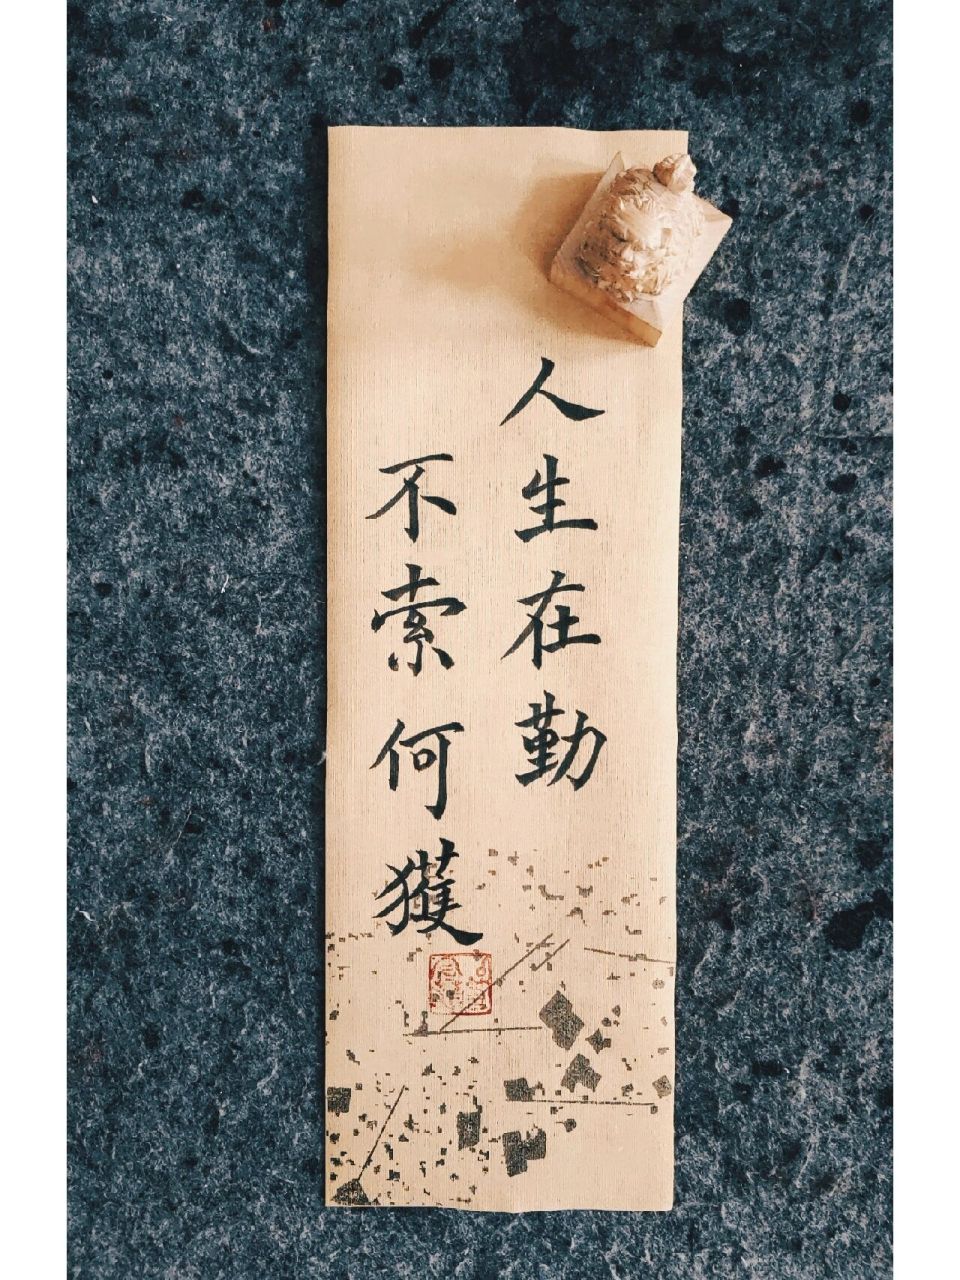 人生在勤
不索何獲